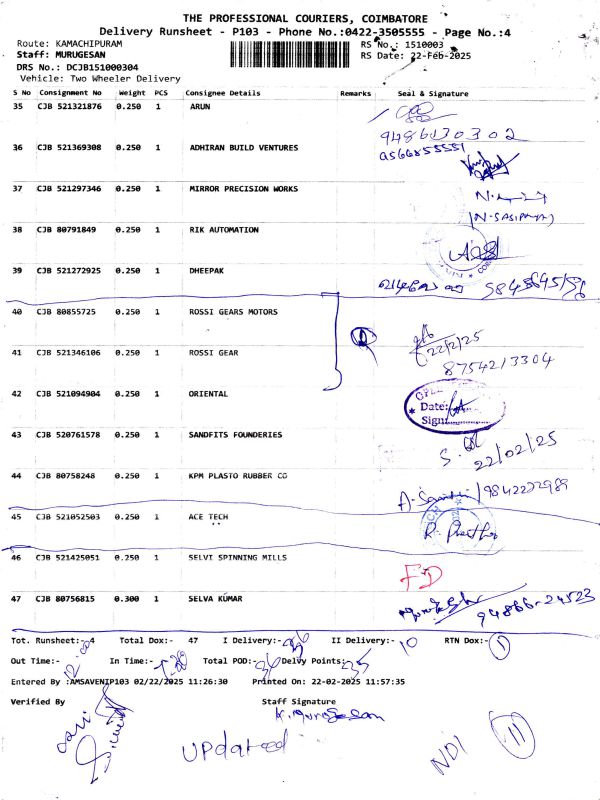 THE PROFESSIONAL COURIERS, COIMBATORE
Delivery Runsheet - P103 - Phone No.:0422-3505555 - Page No.:4
Route: KAMACHIPURAM RS No.: 1510003
Staff: MURUGESAN RS Date: 22-Feb-2025
DRS No.: DCJB151000304
Vehicle: Two Wheeler Delivery
S No Consignment No Weight PCS Consignee Details Remarks Seal & Signature
35 CJB 521321876 0.250 1 ARUN
9486130302
36 CJB 521369308 0.250 1 ADHIRAN BUILD VENTURES
37 CJB 521297346 0.250 1 MIRROR PRECISION WORKS
38 CJB 80791849 0.250 1 RIK AUTOMATION
39 CJB 521272925 0.250 1 DHEEPAK
40 CJB 80855725 0.250 1 ROSSI GEARS MOTORS
22/2/25
41 CJB 521346106 0.250 1 ROSSI GEAR
8754213304
42 CJB 521094904 0.250 1 ORIENTAL
Date:
Sign
43 CJB 520761578 0.250 1 SANDFITS FOUNDERIES
22/02/25
44 CJB 80758248 0.250 1 KPM PLASTO RUBBER CO
9842222989
45 CJB 521052503 0.250 1 ACE TECH
46 CJB 521425051 0.250 1 SELVI SPINNING MILLS
FD
47 CJB 80756815 0.300 1 SELVA KUMAR
94866-24523
Tot. Runsheet:- 4 Total Dox:- 47 I Delivery:- 36 II Delivery:- 10 RTN Dox:- 1
Out Time:- 12.00 In Time:- Total POD:- 36 Delvy Points:- 35
Entered By :AMSAVENIP103 02/22/2025 11:26:30 Printed On: 22-02-2025 11:57:35
Verified By Staff Signature
K. Murugesan
UPdated
NDI 11